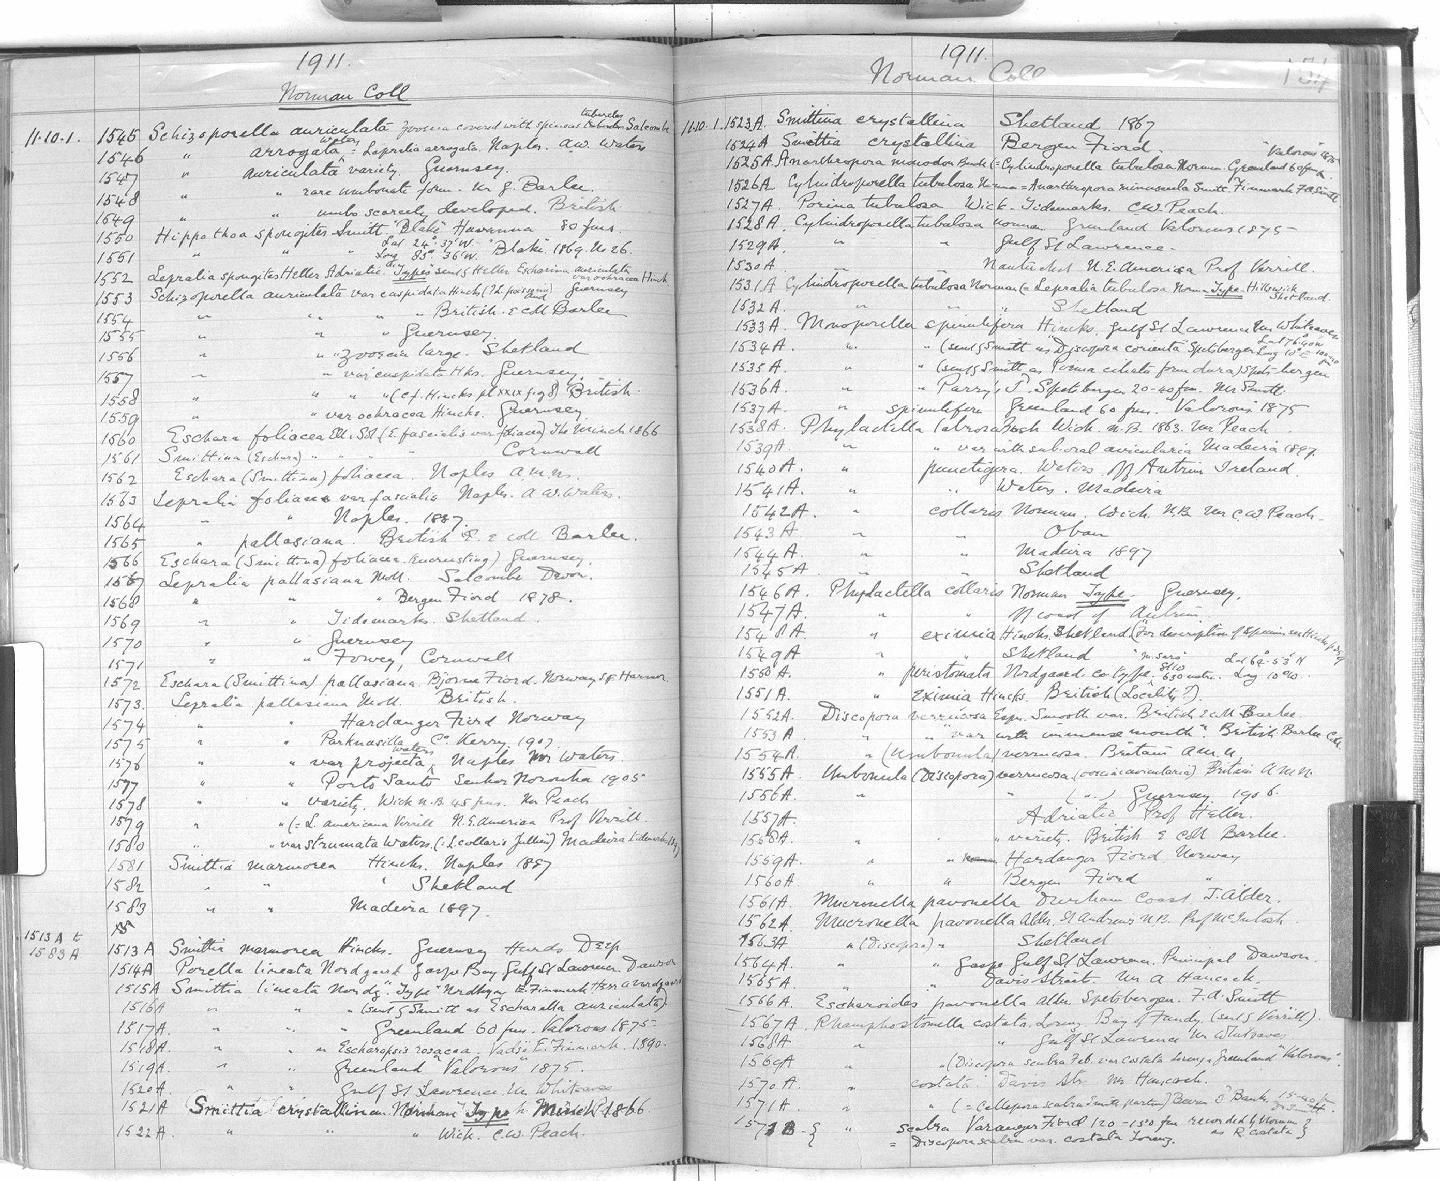 1911.
Norman Coll
11.10.1. 1545 Schizoporella auriculata Zooecia covered with spinous tubercles Salcombe
1546 " arrogata Waters = Lepralia arrogata. Naples. A.W. Waters
1547 " auriculata variety. Guernsey.
1548 " " rare umbonate form. Barlee.
1549 " " umbo scarcely developed. British
1550 Hippothoa spongites Smitt. "Blake" Havanna 80 fms.
1551 " " " Lat 24° 37' W. Long 83° 36' W. Blake. 1869. No 26.
1552 Lepralia spongites Heller Adriatic. "Types" sent by Heller Escharina auriculata var ochracea Hincks
1553 Schizoporella auriculata var cuspidata Hincks Guernsey
1554 " " " " British. E coll Barlee
1555 " " " Guernsey.
1556 " " " Zooecia large. Shetland
1557 " " var cuspidata Hks. Guernsey.
1558 " " " " (cf. Hincks pl XXIX fig 8) British
1559 " " var ochracea Hincks. Guernsey.
1560 Eschara foliacea Ell. & Sol (E. fascialis var foliacea) The Minch 1866
1561 Smittina (Eschara) " " " Cornwall
1562 Eschara (Smittina) foliacea. Naples A.M.N.
1563 Lepralia foliacea var fascialis Naples. A W. Waters.
1564 " " Naples. 1887.
1565 " pallasiana. British E. coll Barlee.
1566 Eschara (Smittina) foliacea (encrusting) Guernsey.
1567 Lepralia pallasiana Moll. Salcombe Devon.
1568 " " " Bergen Fiord 1878.
1569 " " Tidemarks. Shetland.
1570 " " Guernsey
1571 " " Fowey, Cornwall
1572 Eschara (Smittina) pallasiana. Bjorne Fiord. Norway
1573. Lepralia pallasiana Moll. British.
1574 " " Hardanger Fiord Norway
1575 " " Parknasilla Co. Kerry, 1907.
1576 " " var projecta Waters Naples Mr Waters.
1577 " " Porto Santo Senhor Noronha 1905
1578 " " variety, Wick N.B. 45 fms. Mr Peach
1579 " " (= L. americana Verrill N.E. America Prof Verrill.
1580 " " var strumata Waters. (= L. collaris Jullien) Madeira tidemarks
1581 Smittia marmorea Hincks. Naples 1887
1582 " " " Shetland
1583 " " Madeira 1897.
1513 A to 1583 A
1513 A Smittia marmorea Hincks. Guernsey Hurds Deep
1514A Porella lineata Nordgaard Gaspe Bay Gulf St Lawrence. Dawson
1515A Smittia lineata Nordg. "Type" E. Finmark Herr O Nordgaard
1516A " " " (sent by Smitt as Escharella auriculata)
1517A " " " Greenland 60 fms. Valorous 1875
1518A. " " " Escharopsis rosacea. Vadsö E. Finmark. 1890.
1519A. " " Greenland "Valorous" 1875.
1520A " " Gulf St Lawrence Mr Whiteaves
1521A (Smittia) crystallina Norman Type Minch 1866.
1522A " " " Wick. C.W. Peach.
1911.
Norman Coll
154
11.10.1. 1523A. Smittina crystallina Shetland 1867
1524A Smittia crystallina Bergen Fiord.
1525A. Anarthropora monodon Busk (= Cylindroporella tubulosa Norman. Greenland 60 fms "Valorous" 1875
1526A Cylindroporella tubulosa Norma = Anarthropora minuscula Smitt. Finmark F.A. Smitt
1527A. Porina tubulosa Wick. Tidemarks. C.W. Peach.
1528A. Cylindroporella tubulosa Norman Greenland Valorous 1875
1529A. " " Gulf St Lawrence
1530A Nantucket N.E. America Prof Verrill.
1531A Cylindroporella tubulosa Norman (= Lepralia tubulosa Norma Type. Hillswick Shetland.
1532A " " " Shetland
1533A. Monoporella spinulifera Hincks. Gulf St Lawrence Mr Whiteaves
1534A. " " (sent by Smitt as Discopora Spetsbergen
1535A " " (sent by Smitt as Porina ciliata forma dura) Spetsbergen
1536A " " Parry I. Spetsbergen 20-40 fms. Mr Smitt.
1537A " spinulifera Greenland 60 fms. Valorous 1875
1538A. Phylactella labrosa Busk Wick. N.B. 1863. Mr Peach.
1539A. " " var with suboral avicularia Madeira 1897.
1540A. " punctigera. Waters. Off Antrim Ireland.
1541A. " " Waters. Madeira
1542A " collaris Norman. Wick. N.B. Mr C.W. Peach.
1543A " " Oban
1544A. " " Madeira 1897
1545A. " " Shetland
1546A. Phylactella collaris Norman Type. Guernsey.
1547A. " " N coast of Antrim
1548A. " eximia Hincks. Shetland (for description of specimen see Hincks
1549A " " Shetland
1550A. " peristomata Nordgaard Co type
1551A. " eximia Hincks. British (Locality?).
1552A. Discopora verrucosa Esper. Smooth var. British E coll Barlee.
1553A " " "var with immense mouth". British. Barlee Coll.
1554A " (Umbonula) verrucosa. Britain A.M.N.
1555A. Umbonula (Discopora) verrucosa (ooecia avicularia) Britain A.M.N.
1556A " " (..) Guernsey 1906.
1557A. Adriatic Prof Heller.
1558A. " " variety. British E coll Barlee.
1559A " " Hardanger Fiord. Norway
1560A. " " Bergen Fiord "
1561A Mucronella pavonella Durham Coast J. Alder.
1562A. Mucronella pavonella Alder. St Andrews N.B. Prof McIntosh
1563A " (Discopora) " Shetland
1564A. " " Gaspe Gulf St Lawrence. Principal Dawson.
1565A. " " Davis Strait. Mr A Hancock.
1566A. Escharoides pavonella Alder. Spetsbergen. F.A. Smitt
1567A. Rhamphostomella costata. Lorenz Bay of Fundy (sent by Verrill).
1568A " " Gulf St Lawrence Mr Whiteaves
1569A " " (Discopora scabra Fab. var costata Lorenz. Greenland "Valorous"
1570A. " costata. Davis Str. Mr Hancock.
1571A. " " (= Cellepora scabra Smitt partim) Beeren O Bank. 15-40 fm
1571B { " scabra Varanger Fiord 120-150 fm recorded by Norman as R. costata }
= Discopora scabra var. costata Lorenz.